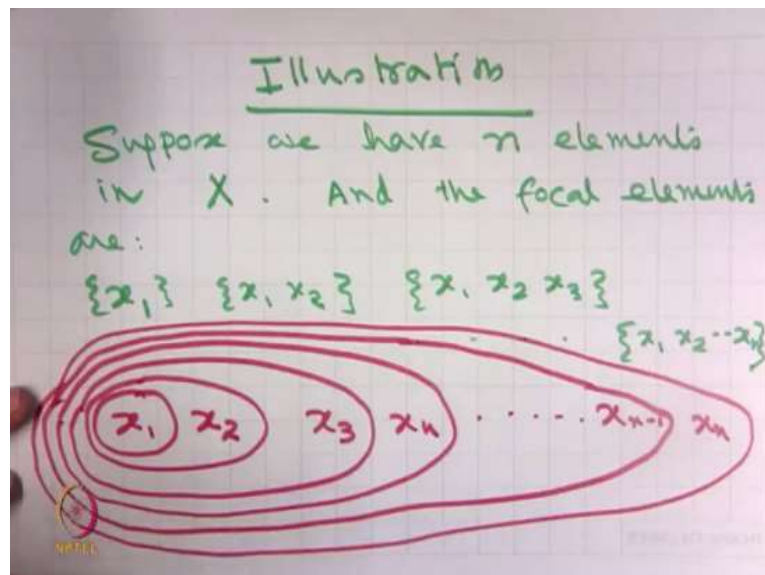 Illustration
Suppose we have n elements
in X. And the focal elements
are:
{x₁} {x₁ x₂} {x₁ x₂ x₃}
. . . . {x₁ x₂ -- xₙ}
x₁ x₂ x₃ xₙ ...... xₙ₋₁ xₙ
NPTEL